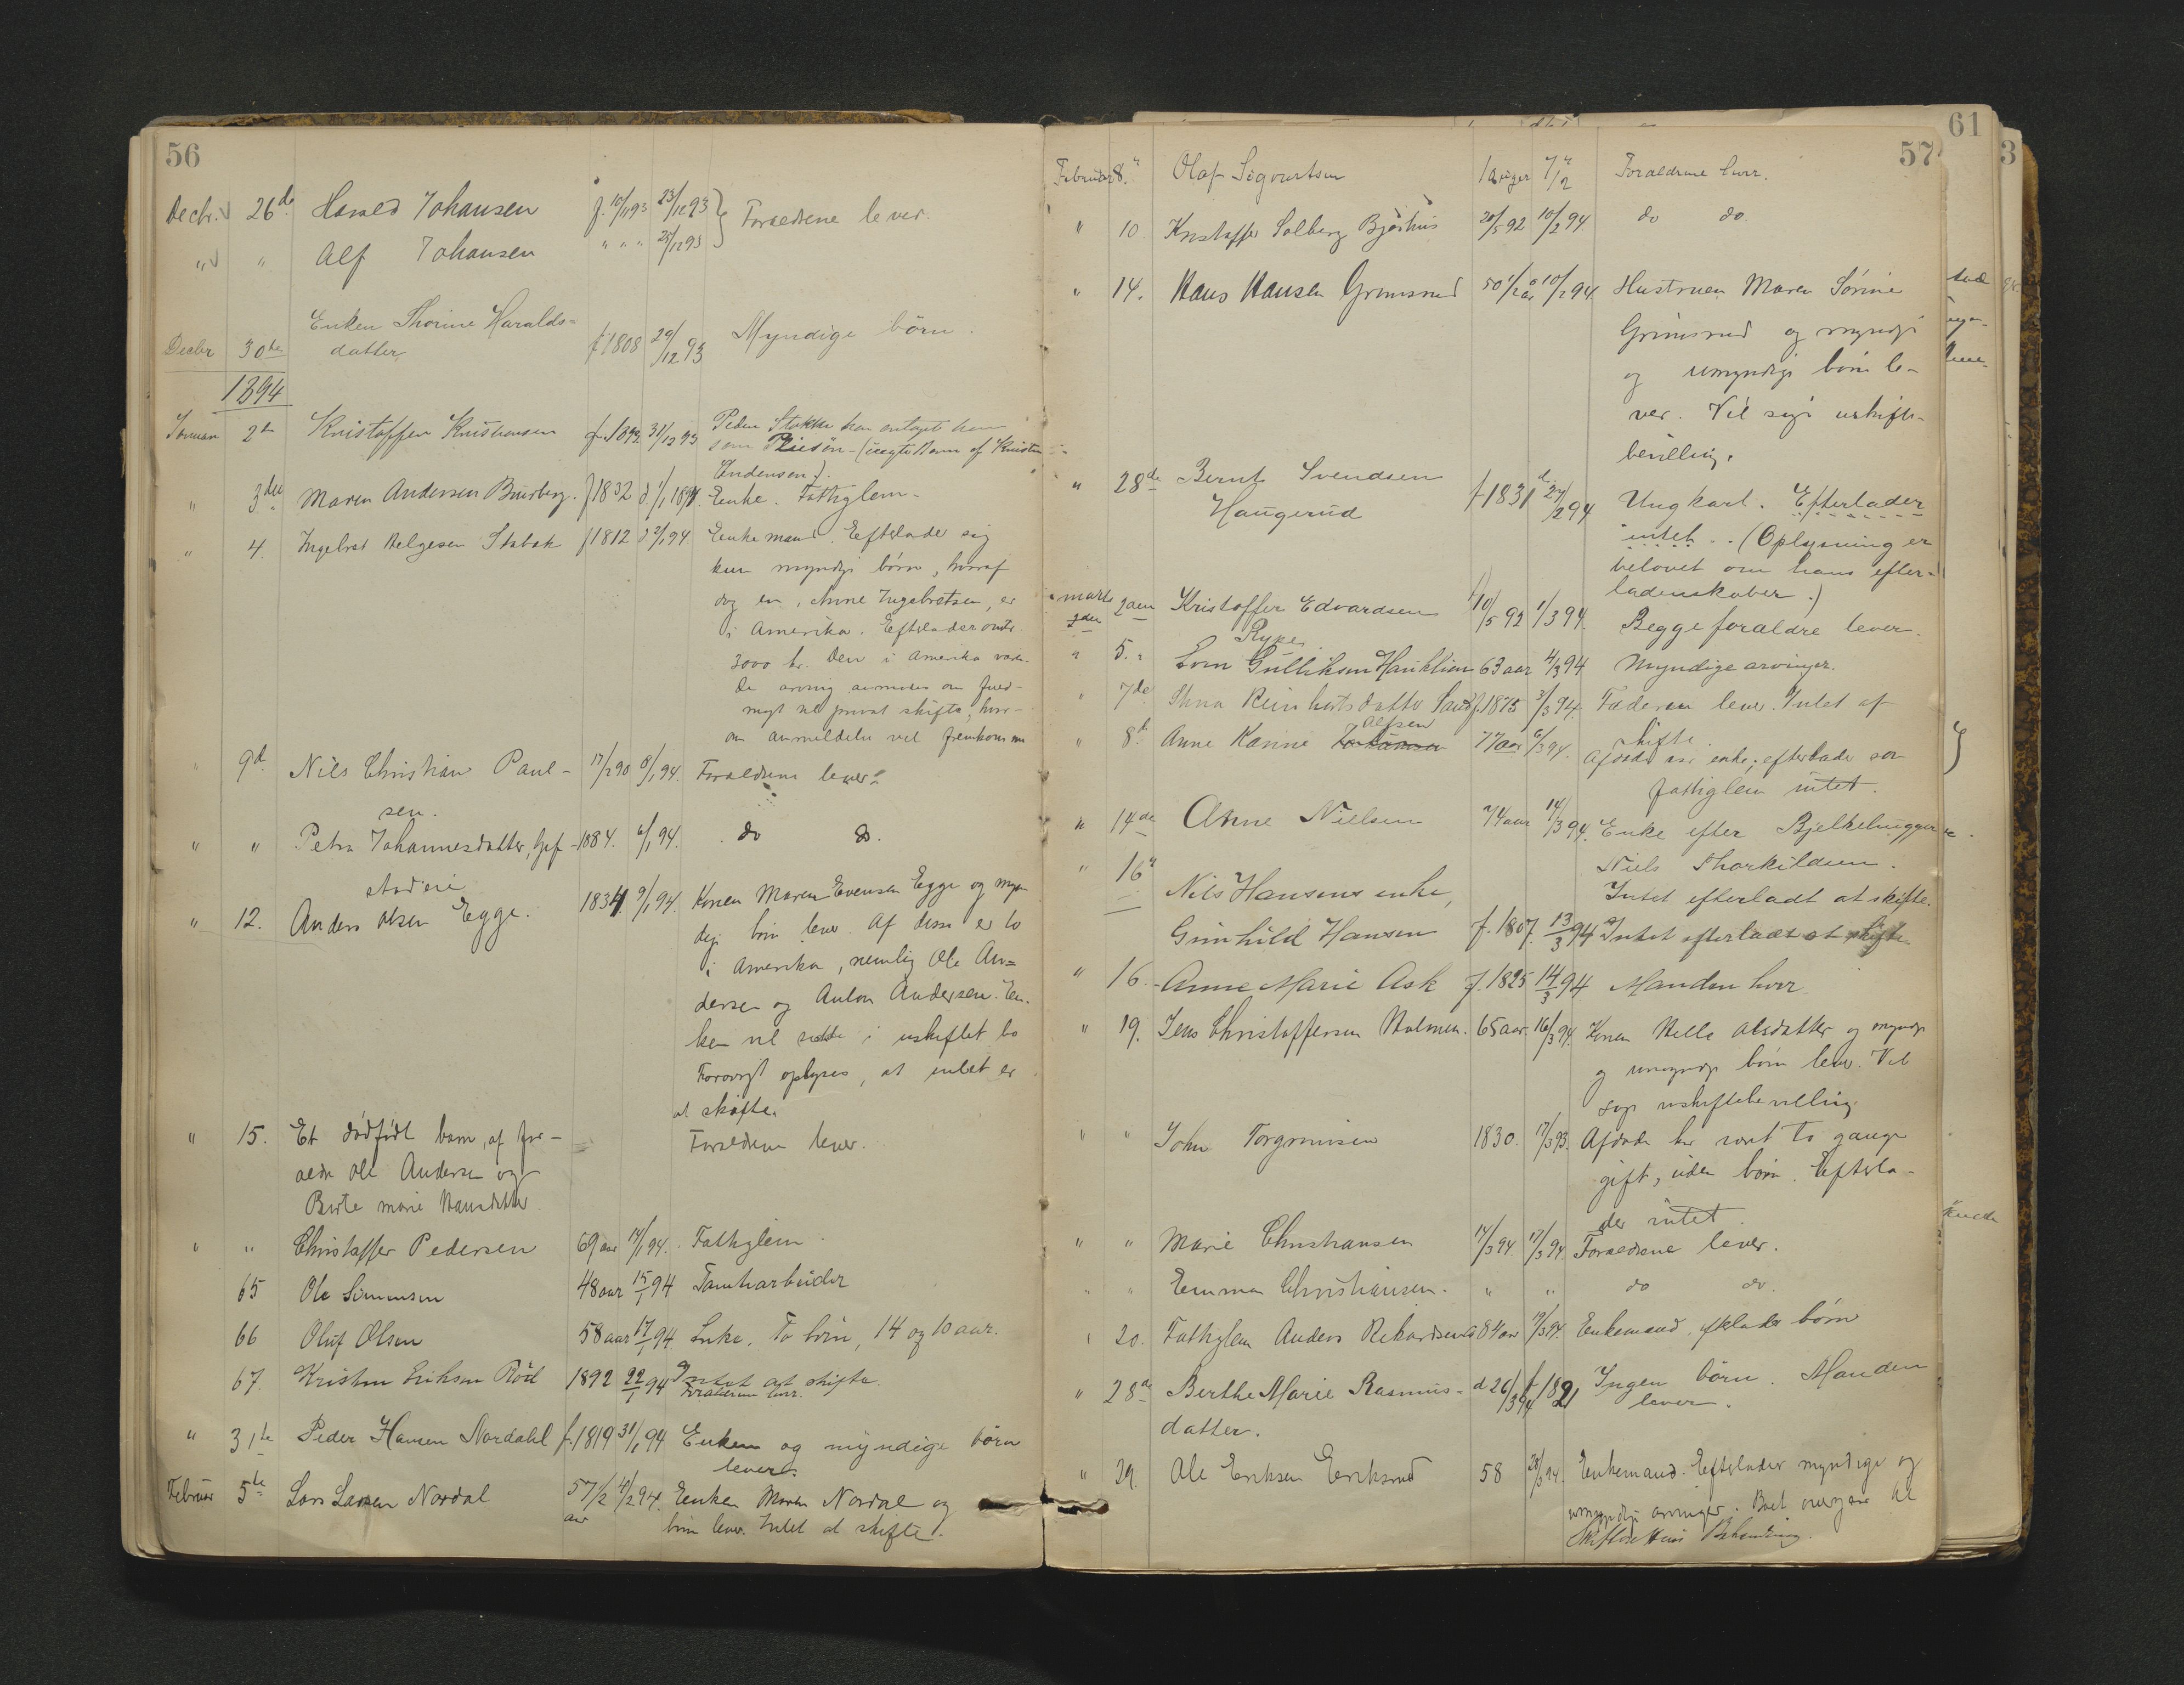 56
Decbr. 26de Harald Johansen f. 10/11 93 23/12 93 Forældrene lever.
" " Alf Johansen " " " 25/12 93
Enken Thorine Haralds=
Decbr 30te datter f 1808 29/12 93 Myndige börn.
1894
Januar 2den Kristoffer Kristiansen f. 1892 31/12 93 Peder Stokke har antaget ham
som Pleiesön - (uægte Barn af Kristin
Andensen).
" 3die Maren Andersen Buerberg. f 1832 d. 1/1 1894. Enke. Fattiglem.
" 4. Ingebret Helgesen Stabæk f 1812 d 2/1 94. Enkemand. Efterlader sig
kun myndige börn, hvoraf
dog en, Anne Ingebretsen, er
i Amerika. Efterlader omtr.
3000 kr. Den i Amerika være-
de arving anmodes om fuld-
magt til privat skifte, hvor-
om anmeldelse vil fremkomme
" 9de Nils Christian Paul- 17/2 90 8/1 94. Forældrene lever.
sen.
" " Petra Johannesdatter, Gjef- 1884. 6/1 94. do do.
stad eie
" 12. Anders Olsen Egge. 1834. 9/1 94. Konen Maren Evensen Egge og myn-
dige börn lever. Af disse er to
i Amerika, nemlig Ole An=
dersen og Anton Andersen. En-
ken vil sidde i uskiftet bo
Forövrigt oplyses, at intet er
at skifte.
" 15. Et dödfödt barn, af for- Forældrene lever.
ældre Ole Andersen og
Berte Marie Hansdatter
" " Christoffer Pedersen 69 aar 14/1 94. Fattiglem.
65 Ole Simensen 48 aar 15/1 94 Tomtearbeider
66 Oluf Olsen 58 aar 17/1 94. Enke. To börn, 14 og 10 aar.
67. Kristen Eriksen Röd 1892 22/1 94 Intet at skifte.
Forældrene lever.
" 31te Peder Hansen Nordahl f. 1819 31/1 94 Enken og myndige börn
lever.
Februar 5te Lars Larsen Nordal 57 1/2 4/2 94. Enken Maren Nordal og
aar börn lever. Intet at skifte.
57
61
3
Februar 8. Olaf Sigvartsen 7/2 Forældrene lever.
" 10. Kristoffer Solberg Bjöshus 20/5 92 10/2 94. do do.
" 14. Hans Hansen Grimsrud 50 1/2 aar 10/2 94. Hustruen Maren Sörine
Grimsrud og myndige
og umyndige börn le-
ver. Vil söge uskifte-
bevilling.
" 28de Bernt Svendsen
Haugerud f 1831 d. 27/2 94 Ungkarl. Efterlader
intet. (Oplysning er
belovet om hans efter=
ladenskaber.)
" marts 2den Kristoffer Edvardsen f 10/5 92 1/3 94. Begge forældre lever.
Rype
" 5. Lorn Gulliksen Hauklien 63 aar 4/3 94 Myndige arvinger.
" 7de Reinhartsdatter Sand f. 1875 3/3 94. Faderen lever. Intet at
skifte.
Alfsen
" 8de Anne Karine Johansen 77 aar 6/3 94. Afdöde var enke; efterlader som
fattiglem intet.
" 14de Anne Nielsen 74 aar 14/3 94. Enke efter Bjelkehugger
Niels Thorkildsen.
Intet efterladt at skifte.
" 16de Nils Hansens enke,
Gunhild Hansen f. 1807. 13/3 94 Intet efterladt at skifte
" 16. Anne Marie Ask f. 1825 14/3 94 Manden lever
" 19. Jens Christoffersen Holmen. 65 aar. 16/3 94. Konen Helle Olsdatter og myndige
og umyndige börn lever. Vil
söge uskiftebevilling
" " John Torgrimsen 1830. 17/3 93. Afdöde har været to gange
gift, uden börn. Efterla-
der intet.
" " Marie Christiansen 14/3 94. 17/3 94. Forældrene lever.
" " Emma Christiansen. " " do do.
" 20. Fattiglem Anders Rikardsen 84 aar 19/3 94. Enkemand, efterlader börn
" 28de Berthe Marie Rasmus- d 26/3 94 f 1821 Ingen börn. Manden
datter. lever.
" 29. Ole Eriksen Eriksrud 58 28/3 94. Enkemand. Efterlader myndige og
umyndige arvinger. Boet overgaar til
Skifterettens Behandling.